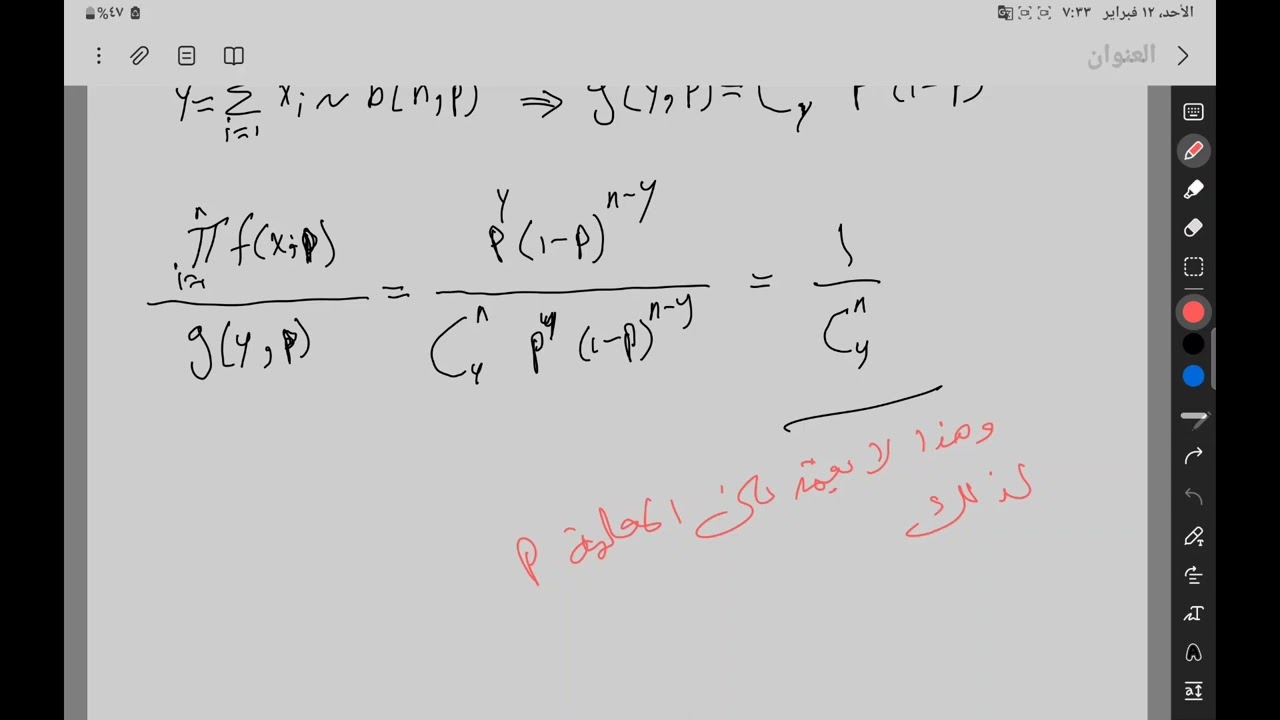 الأحد، ١٢ فبراير ٧:٣٣
٤٧%
العنوان
y = Σ_{i=1} x_i ~ b(n,p) ⇒ g(y,p) = C_y p (1-p)
∏_{i=1}^{n} f(x;p) / g(y,p) = p^y (1-p)^{n-y} / C_y^n p^y (1-p)^{n-y} = 1 / C_y^n
وهذا لا يعتمد على المعلمة p
لذلك